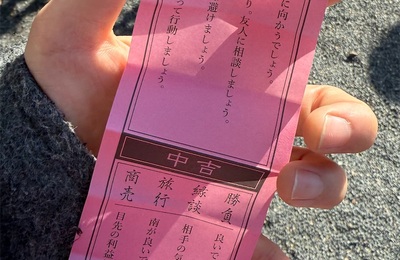 に向かうでしょう
り。友人に相談しましょう。
避けましょう。
って行動しましょう。
中吉
勝負
良いで
縁談
相手の気
旅行
南が良いで
商売
目先の利益